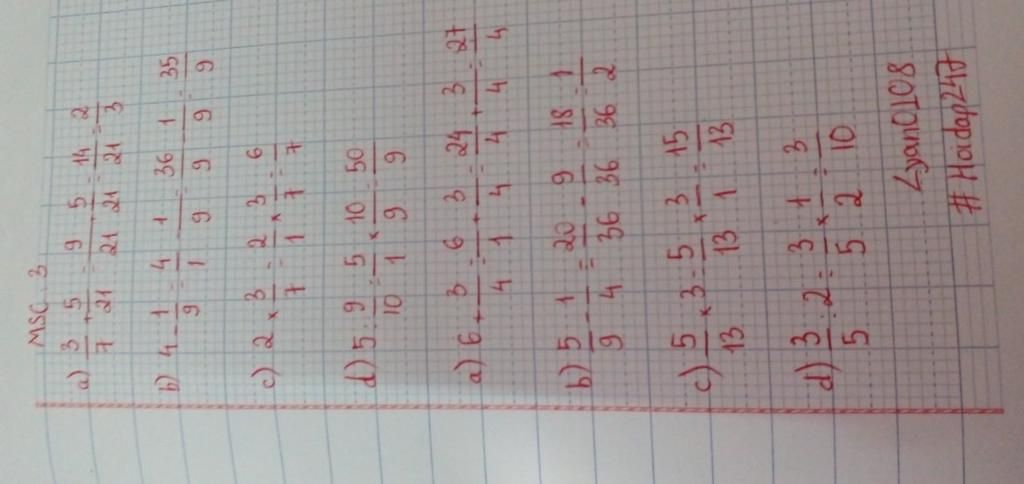 MSC: 3
a) 3/7 + 5/21 = 9/21 + 5/21 = 14/21 = 2/3
b) 4 - 1/9 = 4/1 - 1/9 = 36/9 - 1/9 = 35/9
c) 2 × 3/7 = 2/1 × 3/7 = 6/7
d) 5 : 9/10 = 5/1 × 10/9 = 50/9
a) 6 + 3/4 = 6/1 + 3/4 = 24/4 + 3/4 = 27/4
b) 5/9 - 1/4 = 20/36 - 9/36 = 18/36 = 1/2
c) 5/13 × 3 = 5/13 × 3/1 = 15/13
d) 3/5 : 2 = 3/5 × 1/2 = 3/10
Lyan0108
#Hoidap247